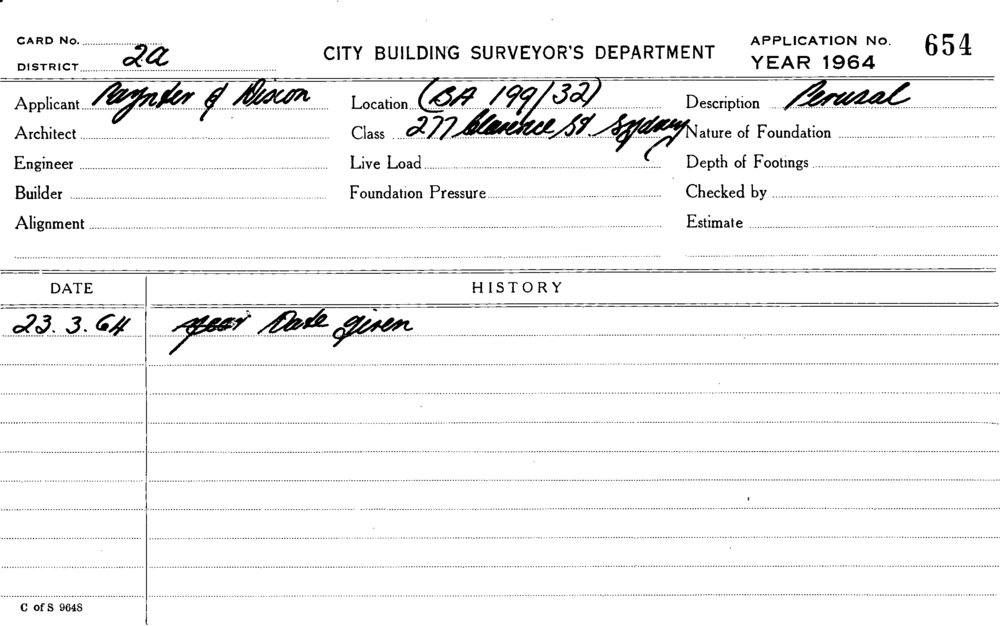 CARD No.
CITY BUILDING SURVEYOR'S DEPARTMENT
APPLICATION No. 654
DISTRICT 2a
YEAR 1964
Applicant Raynder & Discon
Location (BA 199/32)
Description Perusal
Architect
Class 277 Clarence St. Sydney
Nature of Foundation
Engineer
Live Load
Depth of Footings
Builder
Foundation Pressure
Checked by
Alignment
Estimate
DATE
HISTORY
23.3.64 Date given
C of S 9648